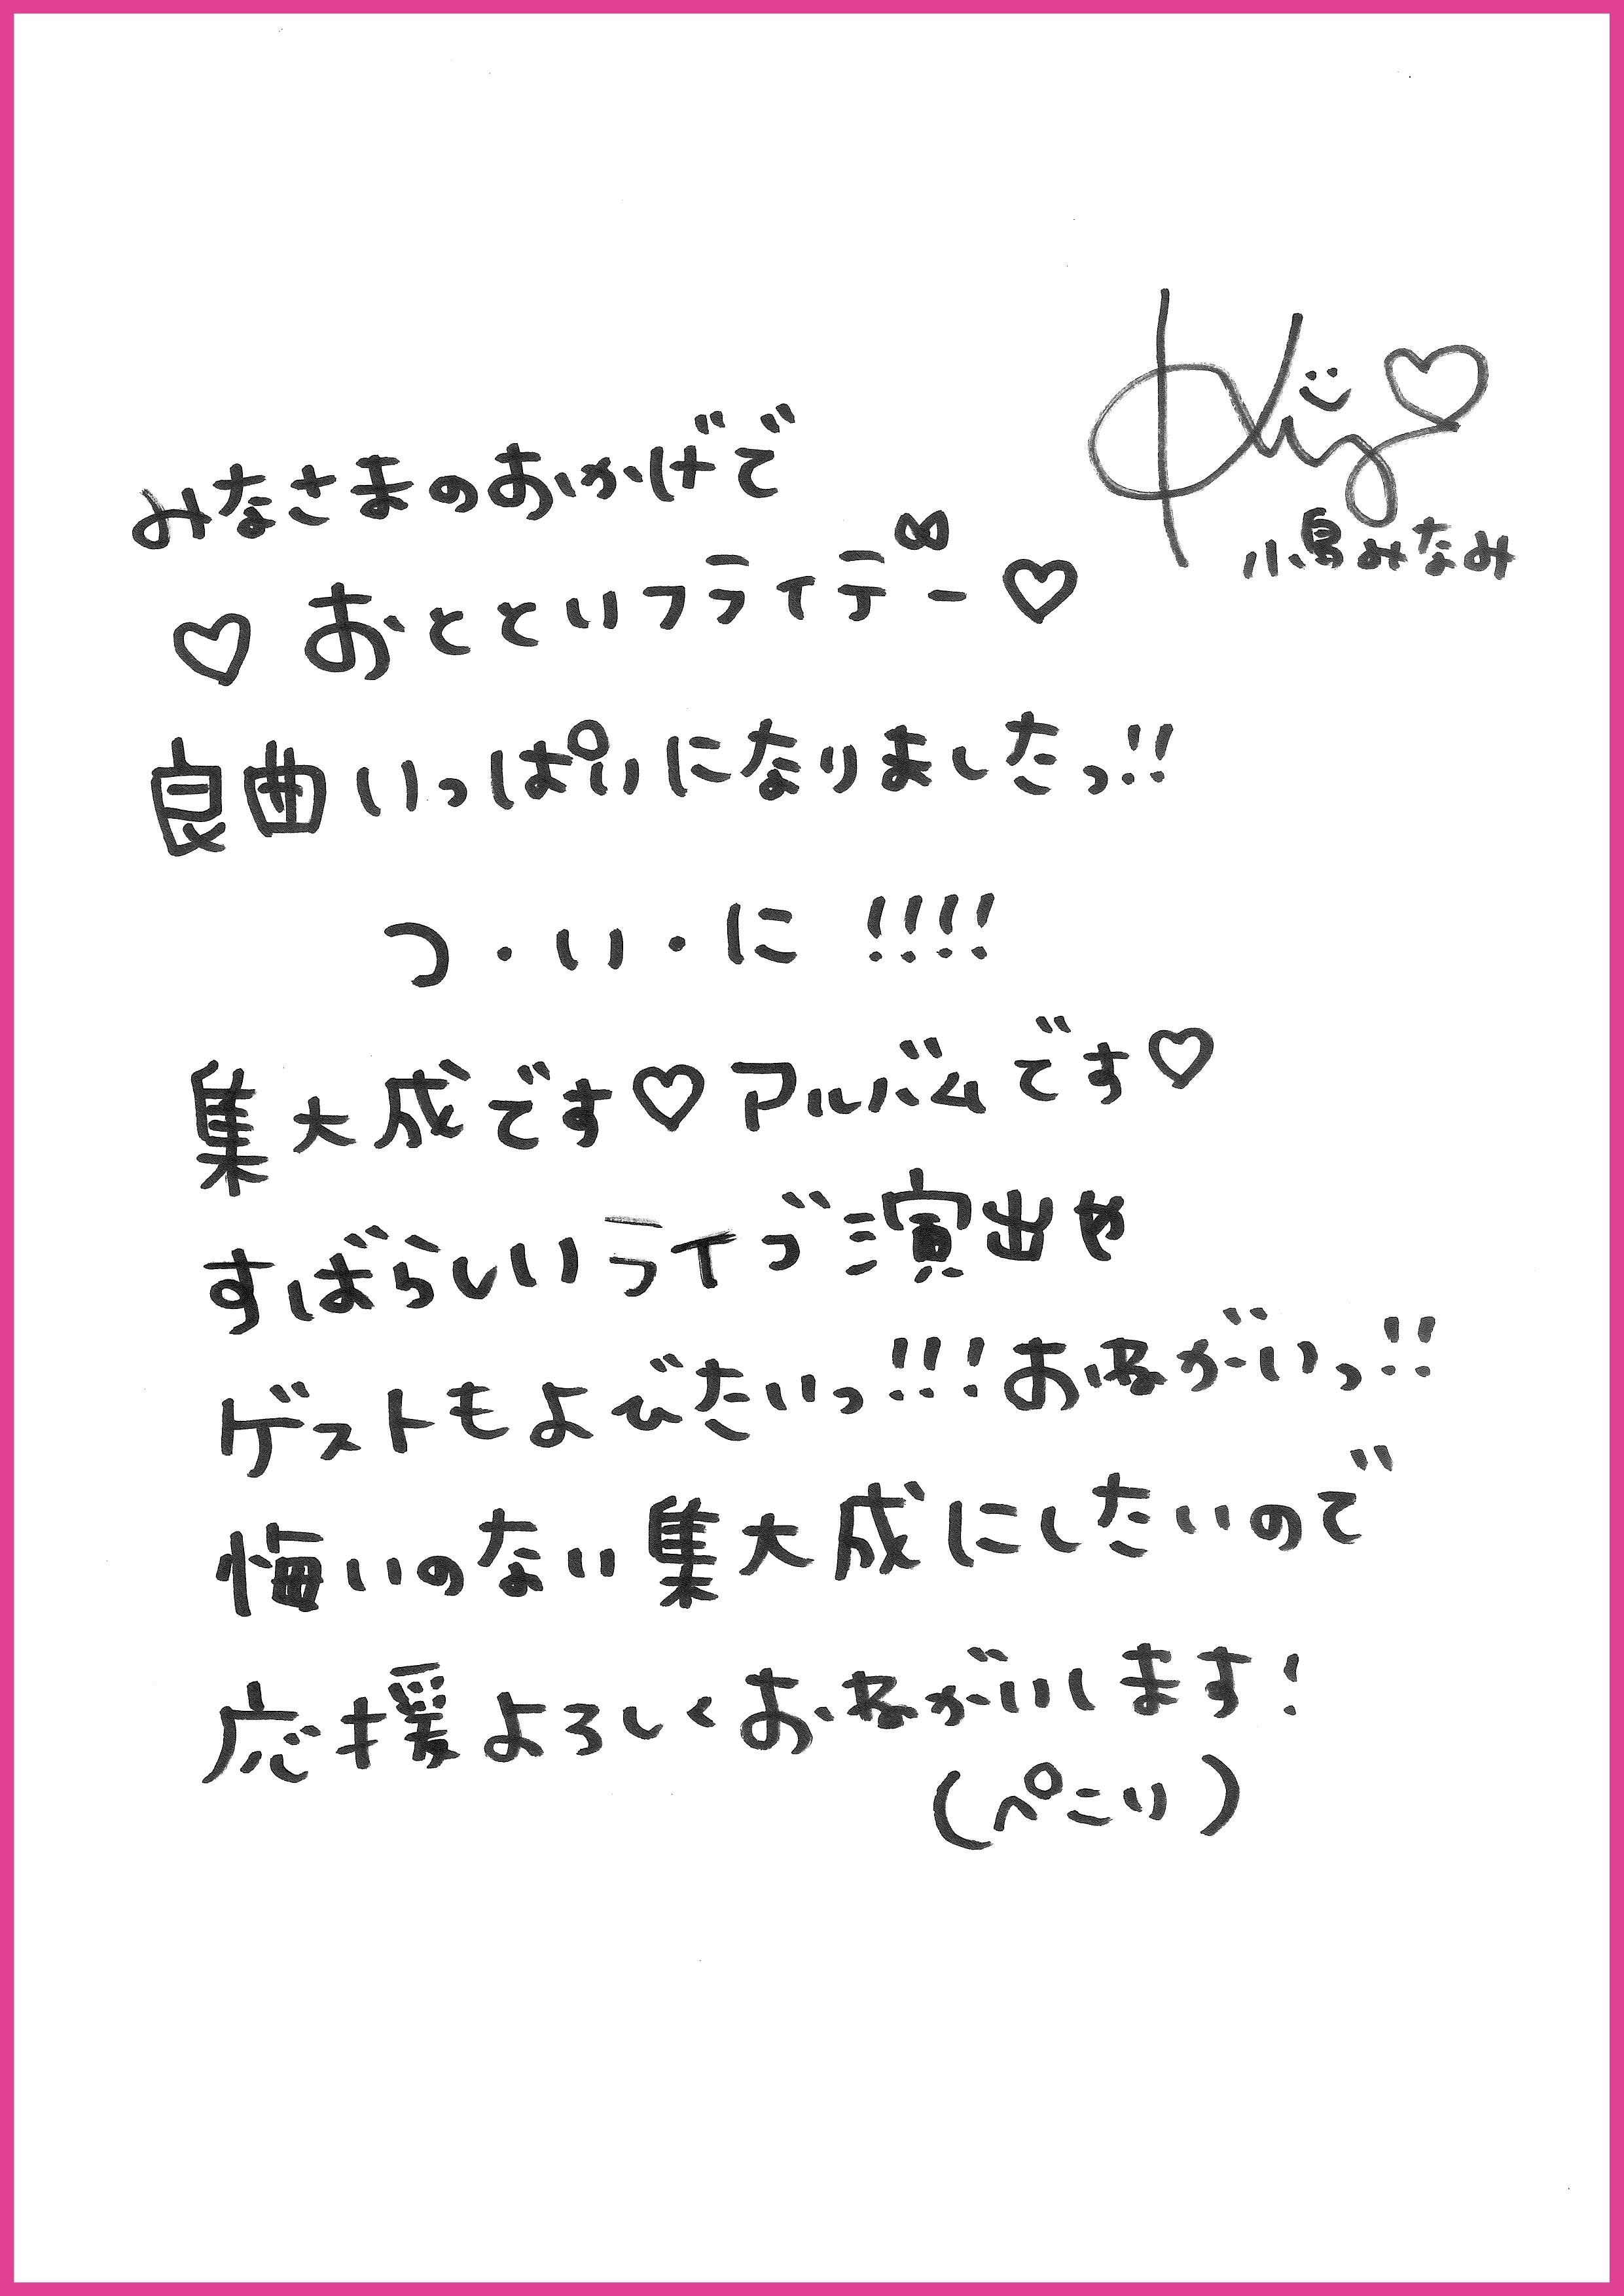 小島みなみ
みなさまのおかげで
♡ おとといフライデー ♡
良曲いっぱいになりましたっ!!
つ・い・に !!!!
集大成です♡アルバムです♡
すばらしいライブ演出や
ゲストもよびたいっ!!!おねがいっ!!
悔いのない集大成にしたいので
応援よろしくおねがいします!
(ぺこり)